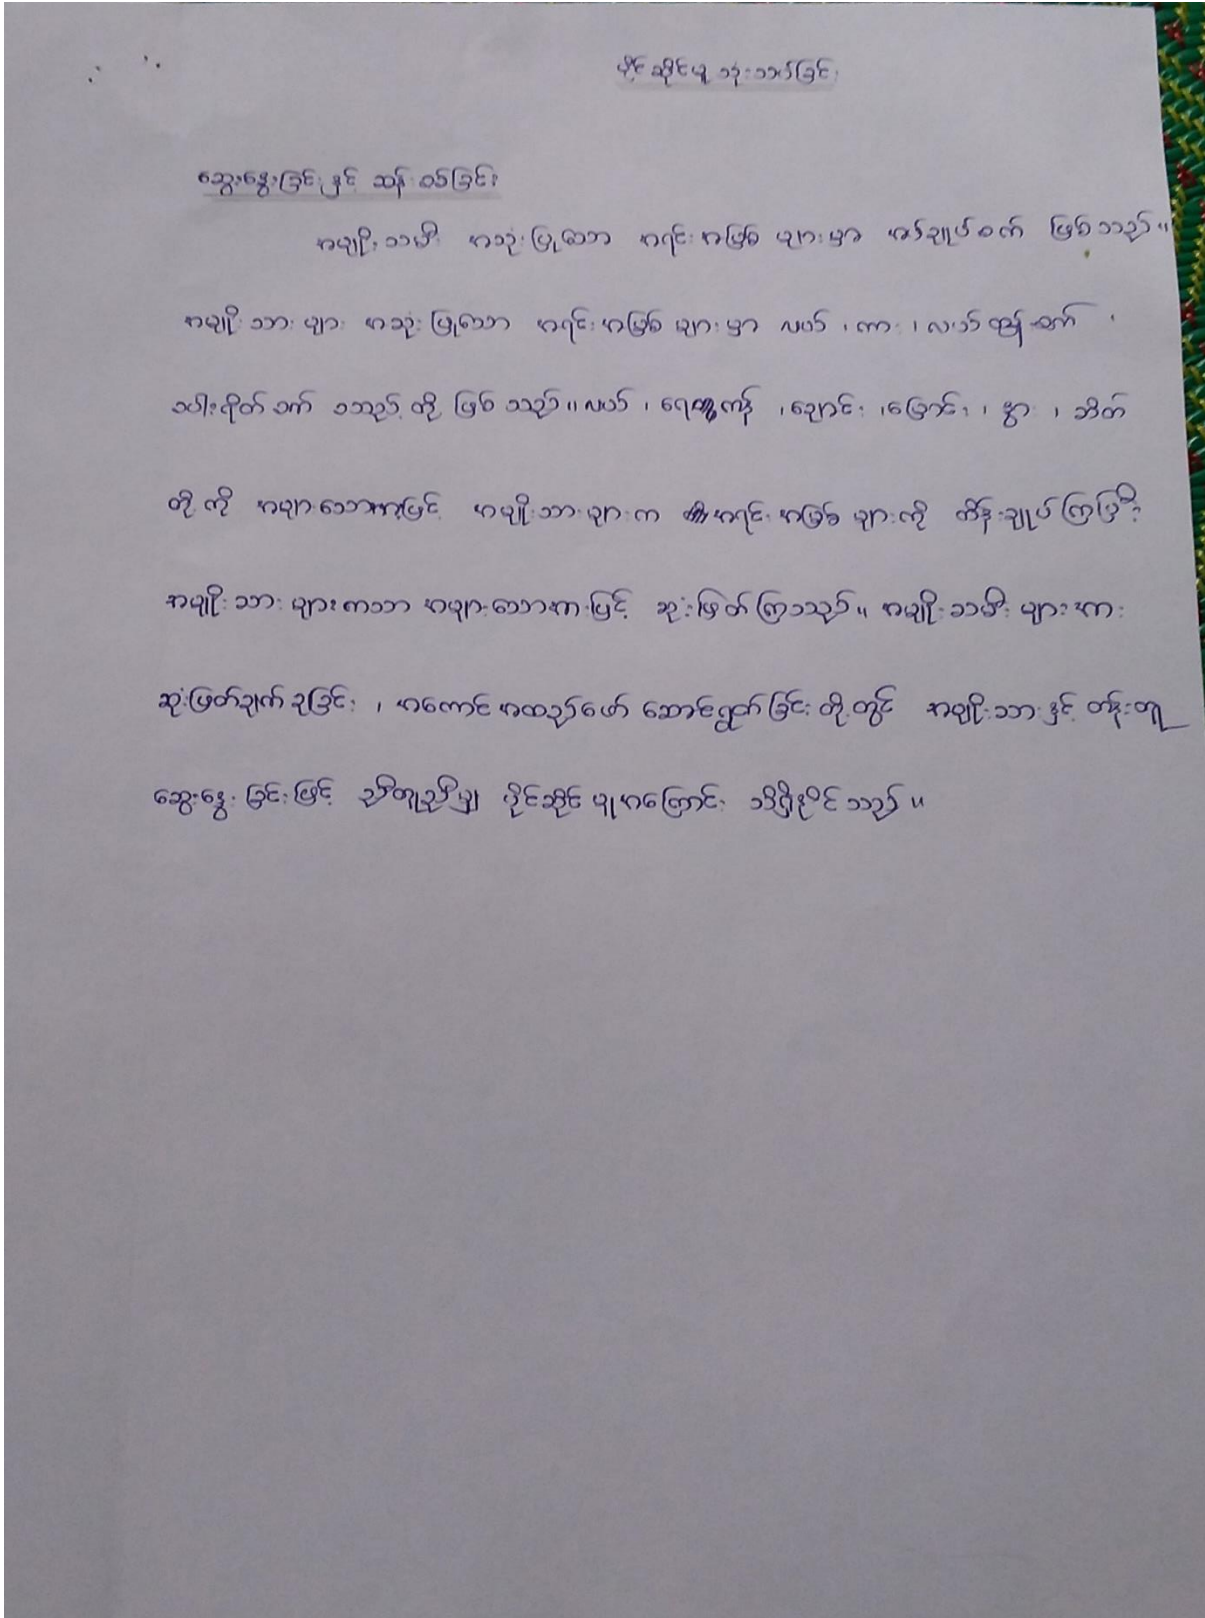 ပိုင်ဆိုင်မှု သုံးသပ်ခြင်း
ဆွေးနွေးခြင်းနှင့် ဆန်းစစ်ခြင်း
အမျိုးသမီး အသုံးပြုသော အရင်းအမြစ်များမှာ အပ်ချုပ်စက် ဖြစ်သည်။
အမျိုးသားများ အသုံးပြုသော အရင်းအမြစ်များမှာ လယ်၊ ကား၊ လယ်ထွန်စက်၊
စပါးရိတ်စက် စသည့်တို့ ဖြစ်သည်။ လယ်၊ ရေတွင်းကန်၊ ချောင်း၊ မြောင်း၊ နွား၊ ဆိတ်
တို့ကို အများသောအားဖြင့် အမျိုးသားများက အရင်းအမြစ်များကို ထိန်းချုပ်ကြပြီး
အမျိုးသားများကသာ အများသောအားဖြင့် ဆုံးဖြတ်ကြသည်။ အမျိုးသမီးများအား
ဆုံးဖြတ်ချက်ချခြင်း၊ အကောင်အထည်ဖော် ဆောင်ရွက်ခြင်းတို့တွင် အမျိုးသားနှင့် တန်းတူ
ဆွေးနွေးခြင်းဖြင့် ညီတူညီမျှ ပိုင်ဆိုင်မှုအကြောင်း သိရှိနိုင်သည်။